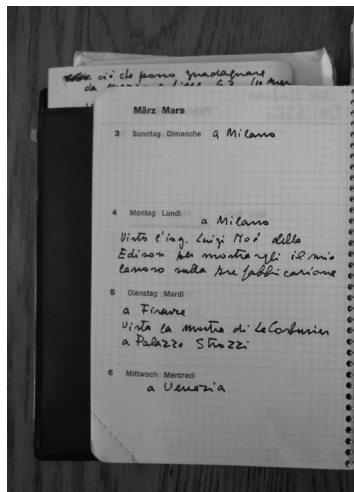 ciò che posso guadagnare
März Mars
3 Sonntag Dimanche a Milano
4 Montag Lundi
a Milano
Visto l'ing. Luigi Moé della
Edison per mostrargli il mio
lavoro sulla prefabbricazione
5 Dienstag Mardi
a Firenze
Vista la mostra di Le Corbusier
a Palazzo Strozzi
6 Mittwoch Mercredi
a Venezia